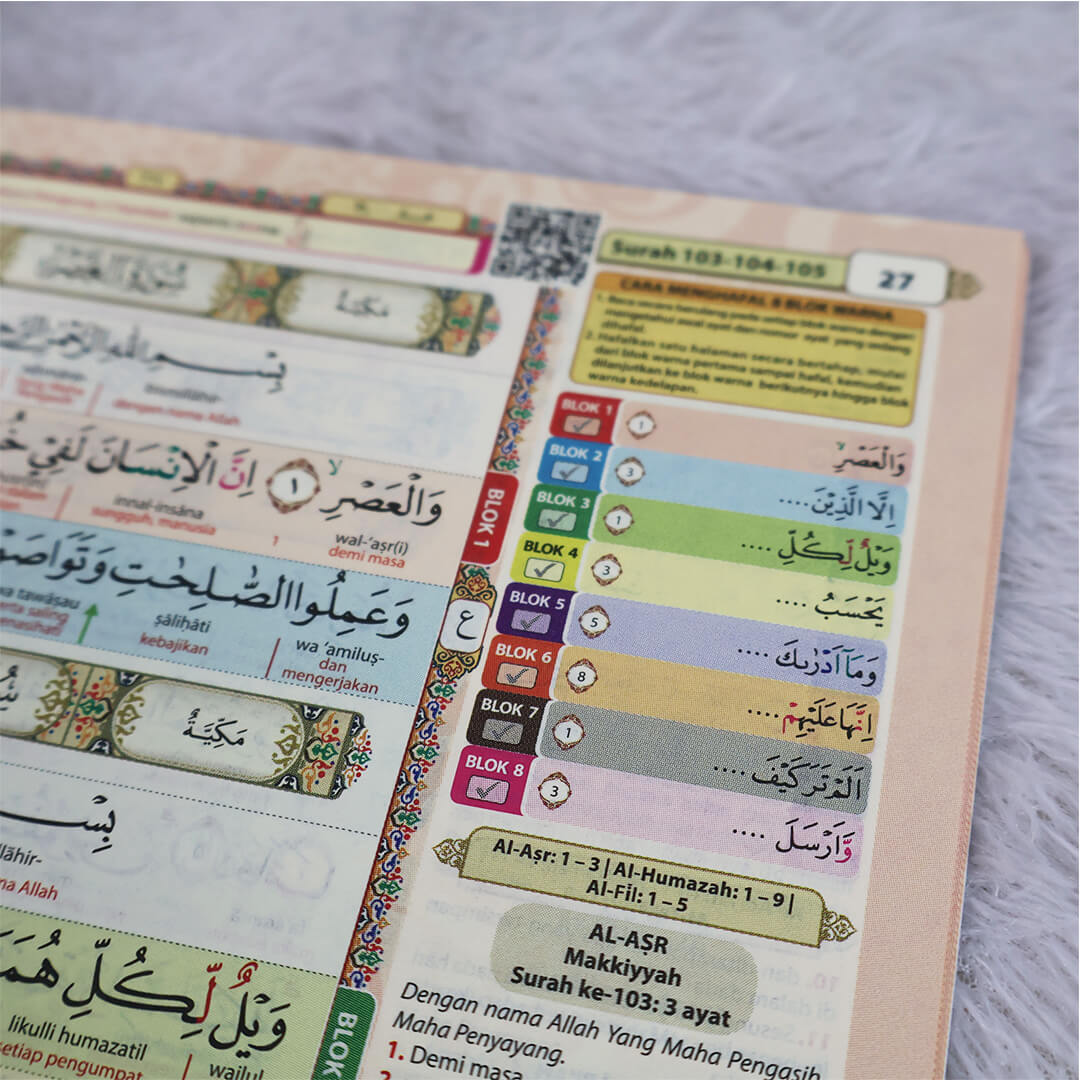 Surah 103-104-105
27
CARA MENGHAFAL 8 BLOK WARNA
1. Baca secara berulang pada setiap blok warna dengan
mengetahui awal ayat dan nomor ayat yang sedang
dihafal.
2. Hafalkan satu halaman secara bertahap, mulai
dari blok warna pertama sampai hafal, kemudian
dilanjutkan ke blok warna berikutnya hingga blok
warna kedelapan.
BLOK 1 1 وَالْعَصْرِۙ
BLOK 2 3 اِلَّا الَّذِيْنَ....
BLOK 3 1 وَيْلٌ لِّكُلِّ ....
BLOK 4 3 يَحْسَبُ ....
BLOK 5 5 وَمَآ اَدْرٰىكَ ....
BLOK 6 8 اِنَّهَا عَلَيْهِمْ ....
BLOK 7 1 اَلَمْ تَرَ كَيْفَ ....
BLOK 8 3 وَّاَرْسَلَ ....
Al-Aṣr: 1 – 3 | Al-Humazah: 1 – 9 |
Al-Fīl: 1 – 5
AL-AṢR
Makkiyyah
Surah ke-103: 3 ayat
Dengan nama Allah Yang Maha Pengasih
Maha Penyayang.
1. Demi masa,
2.
سُوْرَةُ الْعَصْرِ
مَكِّيَّةٌ
بِسْمِ اللّٰهِ الرَّحْمٰنِ
bismillāhir-
dengan nama Allah
وَالْعَصْرِۙ ١ اِنَّ الْاِنْسَانَ لَفِيْ
wal-‘aṣr(i) innal-insāna
demi masa 1 sungguh, manusia
BLOK 1
وَعَمِلُوا الصّٰلِحٰتِ وَتَوَاصَوْا
wa ‘amiluṣ- ṣāliḥāti wa tawāṣau
dan kebajikan serta saling
mengerjakan menasihati
ع
مَكِّيَّةٌ
بِسْ
llāhir-
na Allah
وَيْلٌ لِّكُلِّ هُمَ
wailul likulli humazatil
setiap pengumpat
BLOK